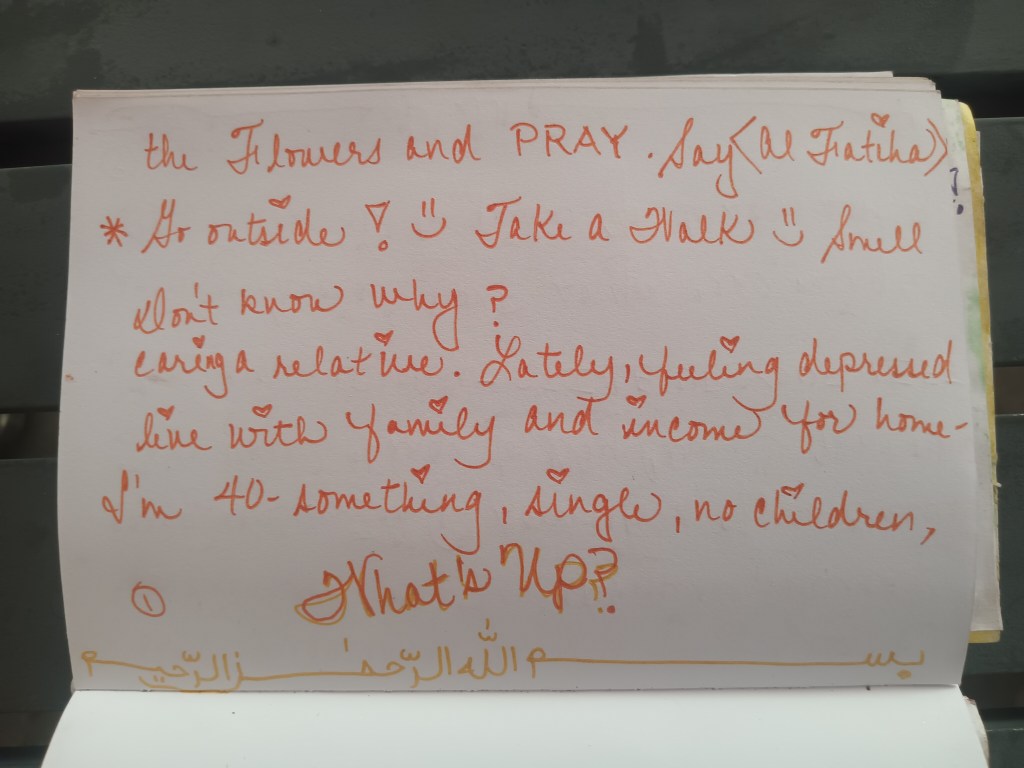 بسم الله الرّحمٰن الرّحيم
① What's Up?
I'm 40-something, single, no children,
live with family and income for home-
caring a relative. Lately, feeling depressed
Don't know why?
* Go outside! ☺ Take a Walk ☺ Smell
the Flowers and PRAY. Say <Al Fatiha>?